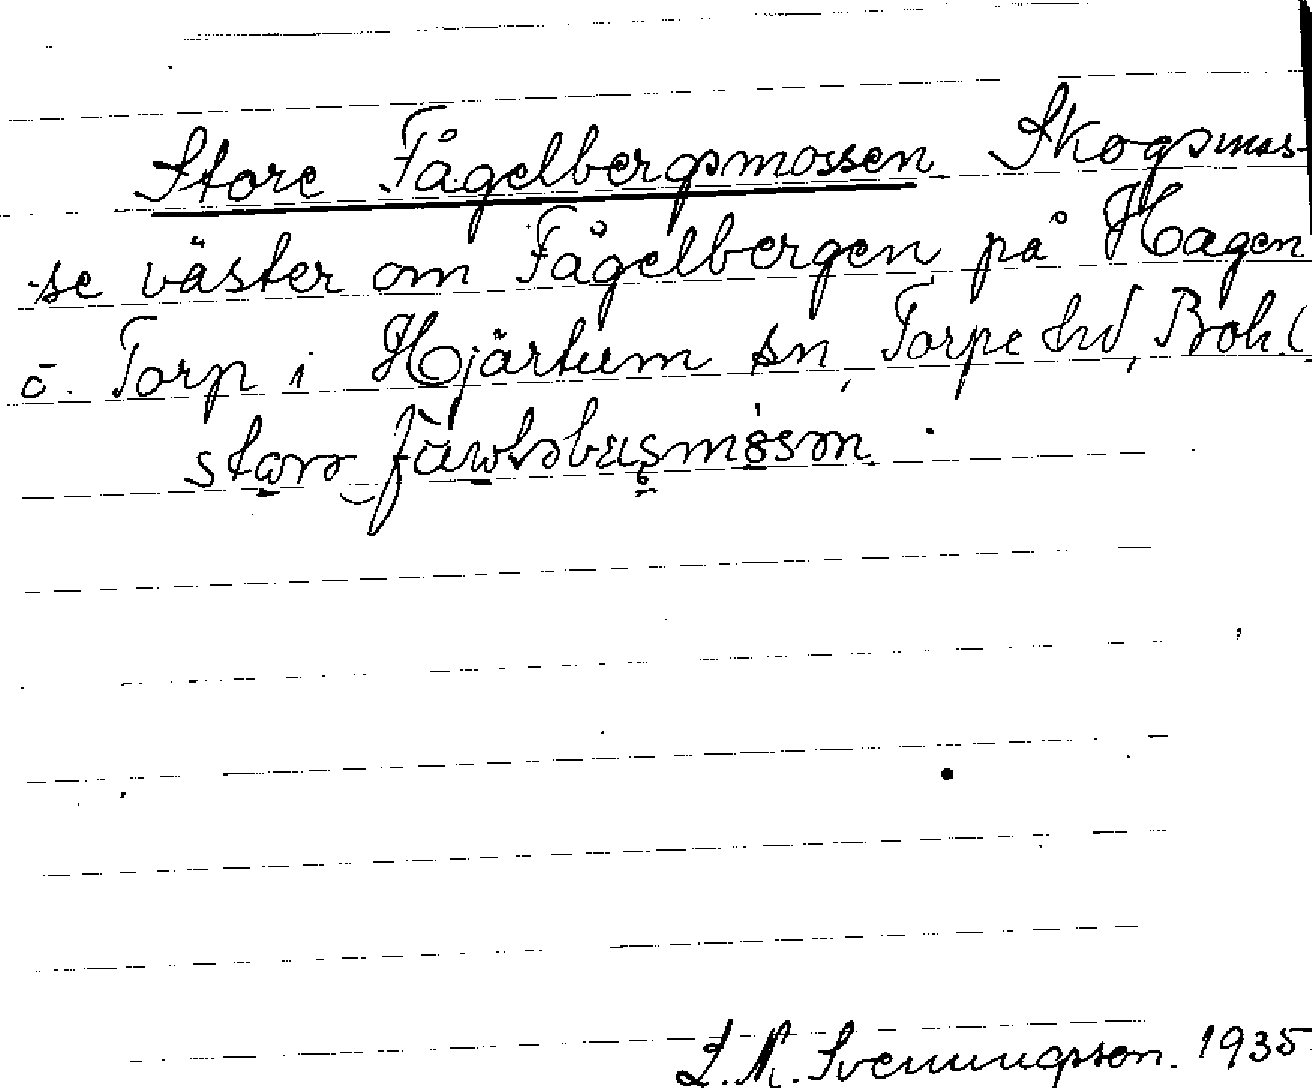 Store Fågelbergsmossen Skogsmos-
se väster om Fågelbergen på Hagen
ö. Torp i Hjärtum sn, Torpe hd, Boh.l.
L. M. Svenungsson. 1935